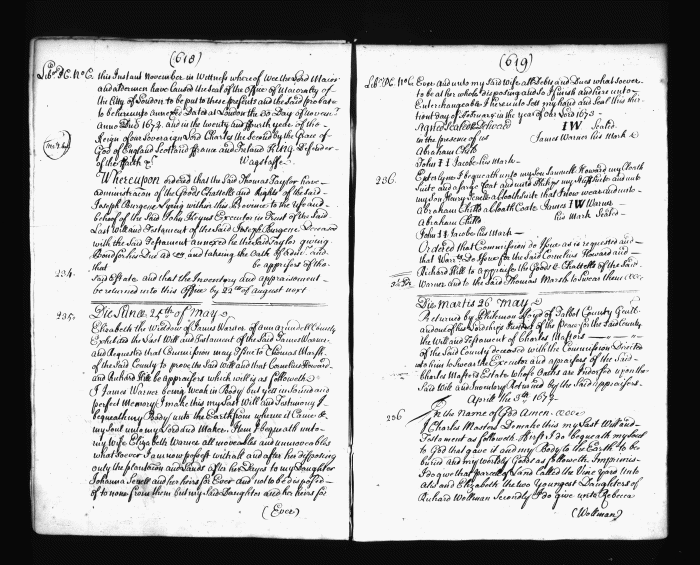 (618)
Liber PC. No C. this Instant November in Wittness whereof Wee the Lord Maior
and Aldermen have Caused the Seal of the Office of Maioralty of
the Citty of London to be put to these presents and the Said probat
to be hereunto annexed Dated at London the 20 Day of Novem.
Anno Dni 1674. and in the twenty and ffourth yeare of the
Reign of our Sovereign Lord Charles the Second by the Grace of
God of England Scotland ffrance and Ireland King Defender
of the ffaith &c Wagstaffe
Whereupon ordered that the Said Thomas Taylor have
administracon of the Goods Chattells and Rights of the Said
Joseph Burgene Lying within this Province to the Use and
behoof of the Said John Keyns Executor in Trust of the Said
Last Will and Testament of the Said Joseph Burgene Deceased
with the Said Testament annexed he the Said Taylor giving
Bond for his Due ad con and taking the Oath of ad nr. and
that be appraisors of the
234. Said Estate and that the Inventory and appraisement
be returned into this Office by 22th of August next
Die Lunæ 25th of May
235. Elizabeth the Widdow of James Warner of ann arundell County
Exhibited the Last Will and Testament of the Said James Warner
and Requested that Commission may Issue to Thomas Marsh
of the Said County to prove the Said Will and that Cornelius Howard
and Richard Hill be appraisors which will is as followeth
I James Warner being Weak in Body but yett in Sound and
perfect Memory, I make this my Last Will and Testimony I
bequeath my Body unto the Earth from whence it Came &
my Soul unto my Lord and Maker. Item I bequeath unto
my Wife Elizabeth Warner all moveables and unmoveables
whatsoever I am now possest withall and after her disposing
only the plantation and Lands after her Days to my Daughter
Johanna Sewell and her heirs for Ever and not to be disposed
of to none from them but my Said Daughter and her heirs for
(Ever)
(619)
Liber PC. No C. Ever and unto my Said Wife all Debts and Dues whatsoever
to be at her whole disposing and So I finish and here unto
Enterchangeable I hereunto Sett my hand and Seal this thir
tiond Day of February in the year of our Lord 1673
Signed Sealed & Deliverd IW Sealed
in the presence of us James Warner his Mark
Abraham Child
John H Jacobe his Mark
236. I bequeath unto my Son Samuell Howard my Cloath
Suite and a large Coat and unto Philip my Stuff Suit and unto
my Son Henry Sewell a Cloath Suite that I now wear and unto
Abraham Child a Cloath Coate. James IW Warner
Abraham Child his Mark Sealed
John H Jacobe his Mark
Ordered that Commission do Issue as is requested and
that Warrt Do Issue for the Said Cornelius Howard and
Richard Hill to appraise the Goods & Chattells of the Said
Warner and to the Said Thomas Marsh to Swear them
Die Martis 26 May
Returned by Philemon Lloyd of Talbot County Gent
and one of his Lordships Justices of the Peace for the Said County
the Will and Testament of Charles Masters
of the Said County deceased with the Commission Directed
to him to Swear the Executor and appraisors of the Said
Charles Masters Estate whose Oaths are Indorsed upon the
Said Will and Inventory Returned by the Said appraisors.
April the 3th 1674
256 In the Name of God Amen.
I Charles Masters Do make this my Last Will and
Testament as followeth. First I do bequeath my Soul
to God that gave it and my Body to the Earth to be
buried and my worldly Goods as followeth. Imprimis
I do give that parcell of Land Called the Vine yard Unto
Als and Elizabeth the two Youngest Daughters of
Richard Wollman Secondly I do give unto Rebecca
(Wollman)